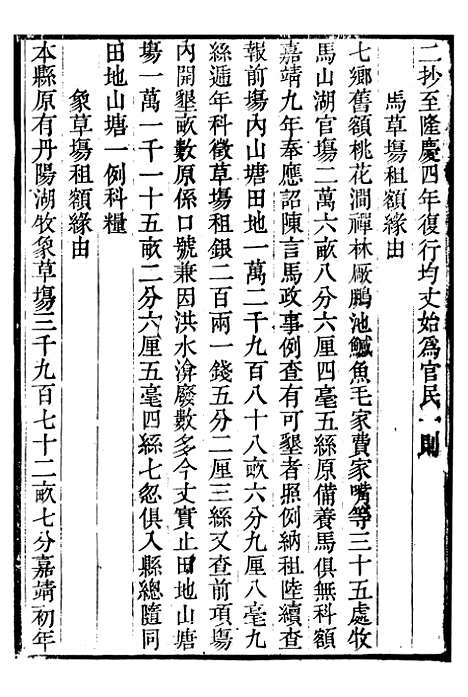 二抄至隆慶四年復行均丈始爲官民一則
馬草塲租額緣由
七鄉舊額桃花澗禪林厰鵬池鰔魚毛家費家嘴等三十五處牧
馬山湖官塲二萬六畝八分四毫五絲原備養馬俱無科額
嘉靖九年奉應詔陳言馬政事例查有可墾者照例納租陸續查
報前塲内山塘田地一萬二千九百八十八畝六分九厘八毫九
絲遞年科徵草塲租銀二百兩一錢五分二厘三絲又查前項塲
内開墾畝數原係口號兼因洪水渰廢數多今丈實止田地山塘
塲一萬一千一十五畝二分六厘五毫四絲七忽俱入縣總隨同
田地山塘一例科糧
象草塲租額緣由
本縣原有丹陽湖牧象草塲三千九百七十二畝七分嘉靖初年